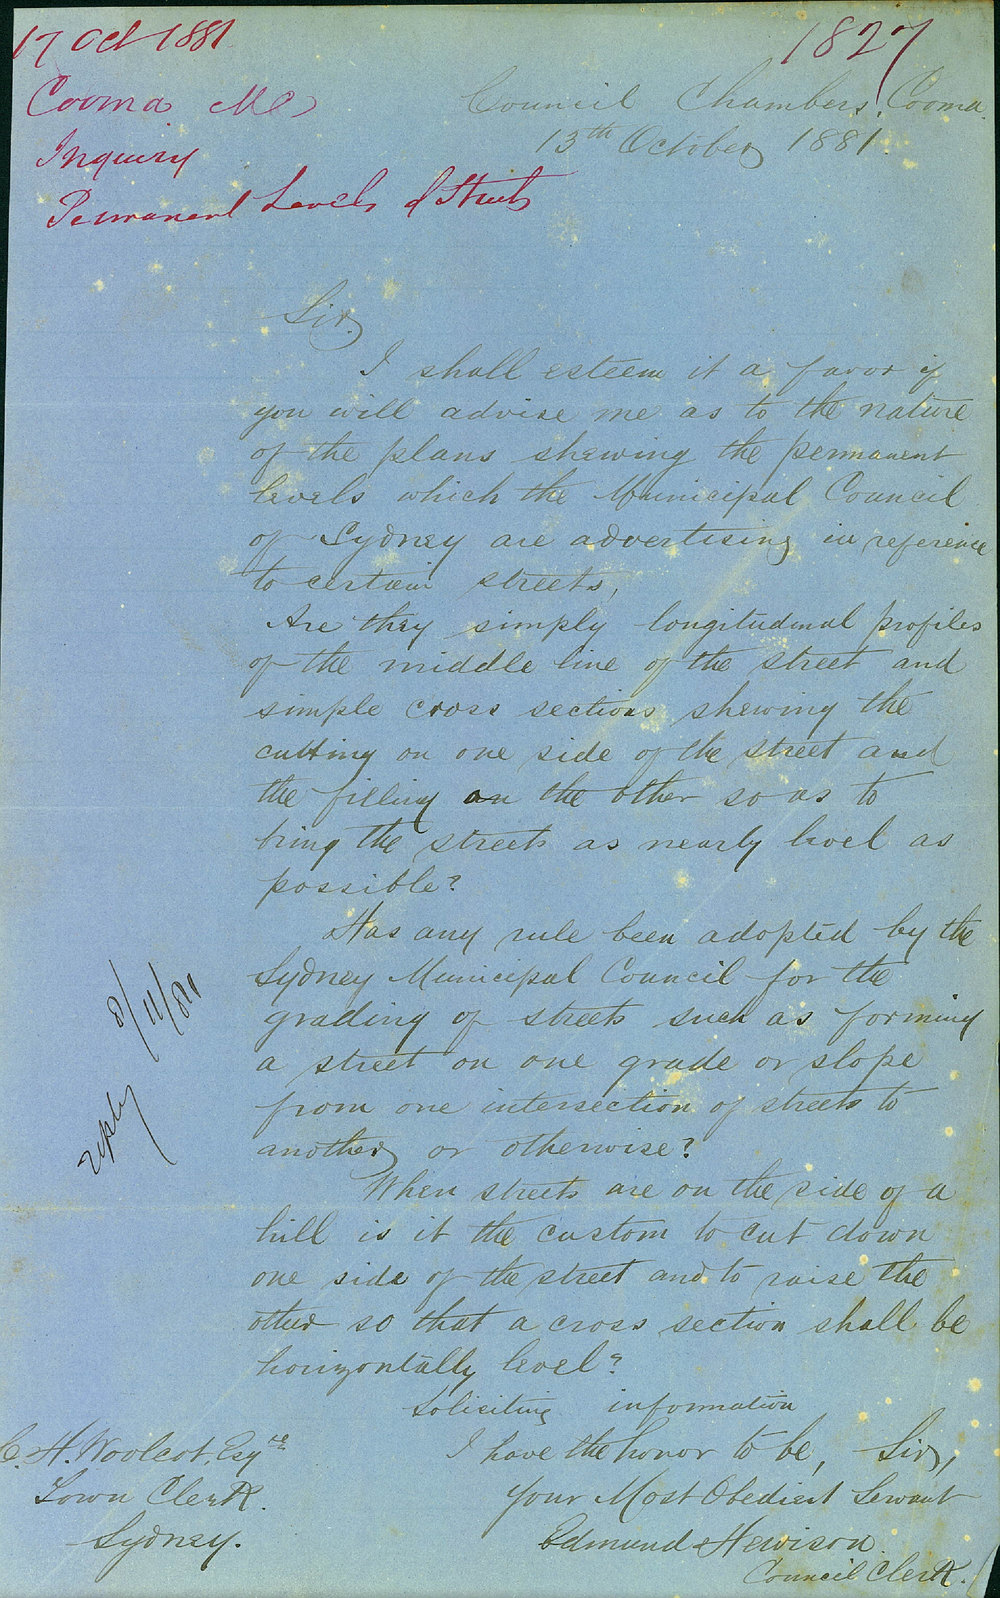 17 Oct 1881
1827
Cooma MC
Inquiry
Permanent Levels of Streets
Council Chambers, Cooma.
13th October 1881.
Sir.
I shall esteem it a favor if
you will advise me as to the nature
of the plans shewing the permanent
levels which the Municipal Council
of Sydney are advertising in reference
to certain streets,
Are they simply longitudinal profiles
of the middle line of the street and
simple cross sections shewing the
cutting on one side of the street and
the filling on the other so as to
bring the streets as nearly level as
possible?
Has any rule been adopted by the
Sydney Municipal Council for the
grading of streets such as forming
a street on one grade or slope
from one intersection of streets to
another or otherwise?
When streets are on the side of a
hill is it the custom to cut down
one side of the street and to raise the
other so that a cross section shall be
horizontally level?
Soliciting information
I have the honor to be, Sir,
Your Most Obedient Servant
Edmund Hewison
Council Clerk.
C. H. Woolcot, Esqre
Town Clerk.
Sydney.
reply 8/11/81